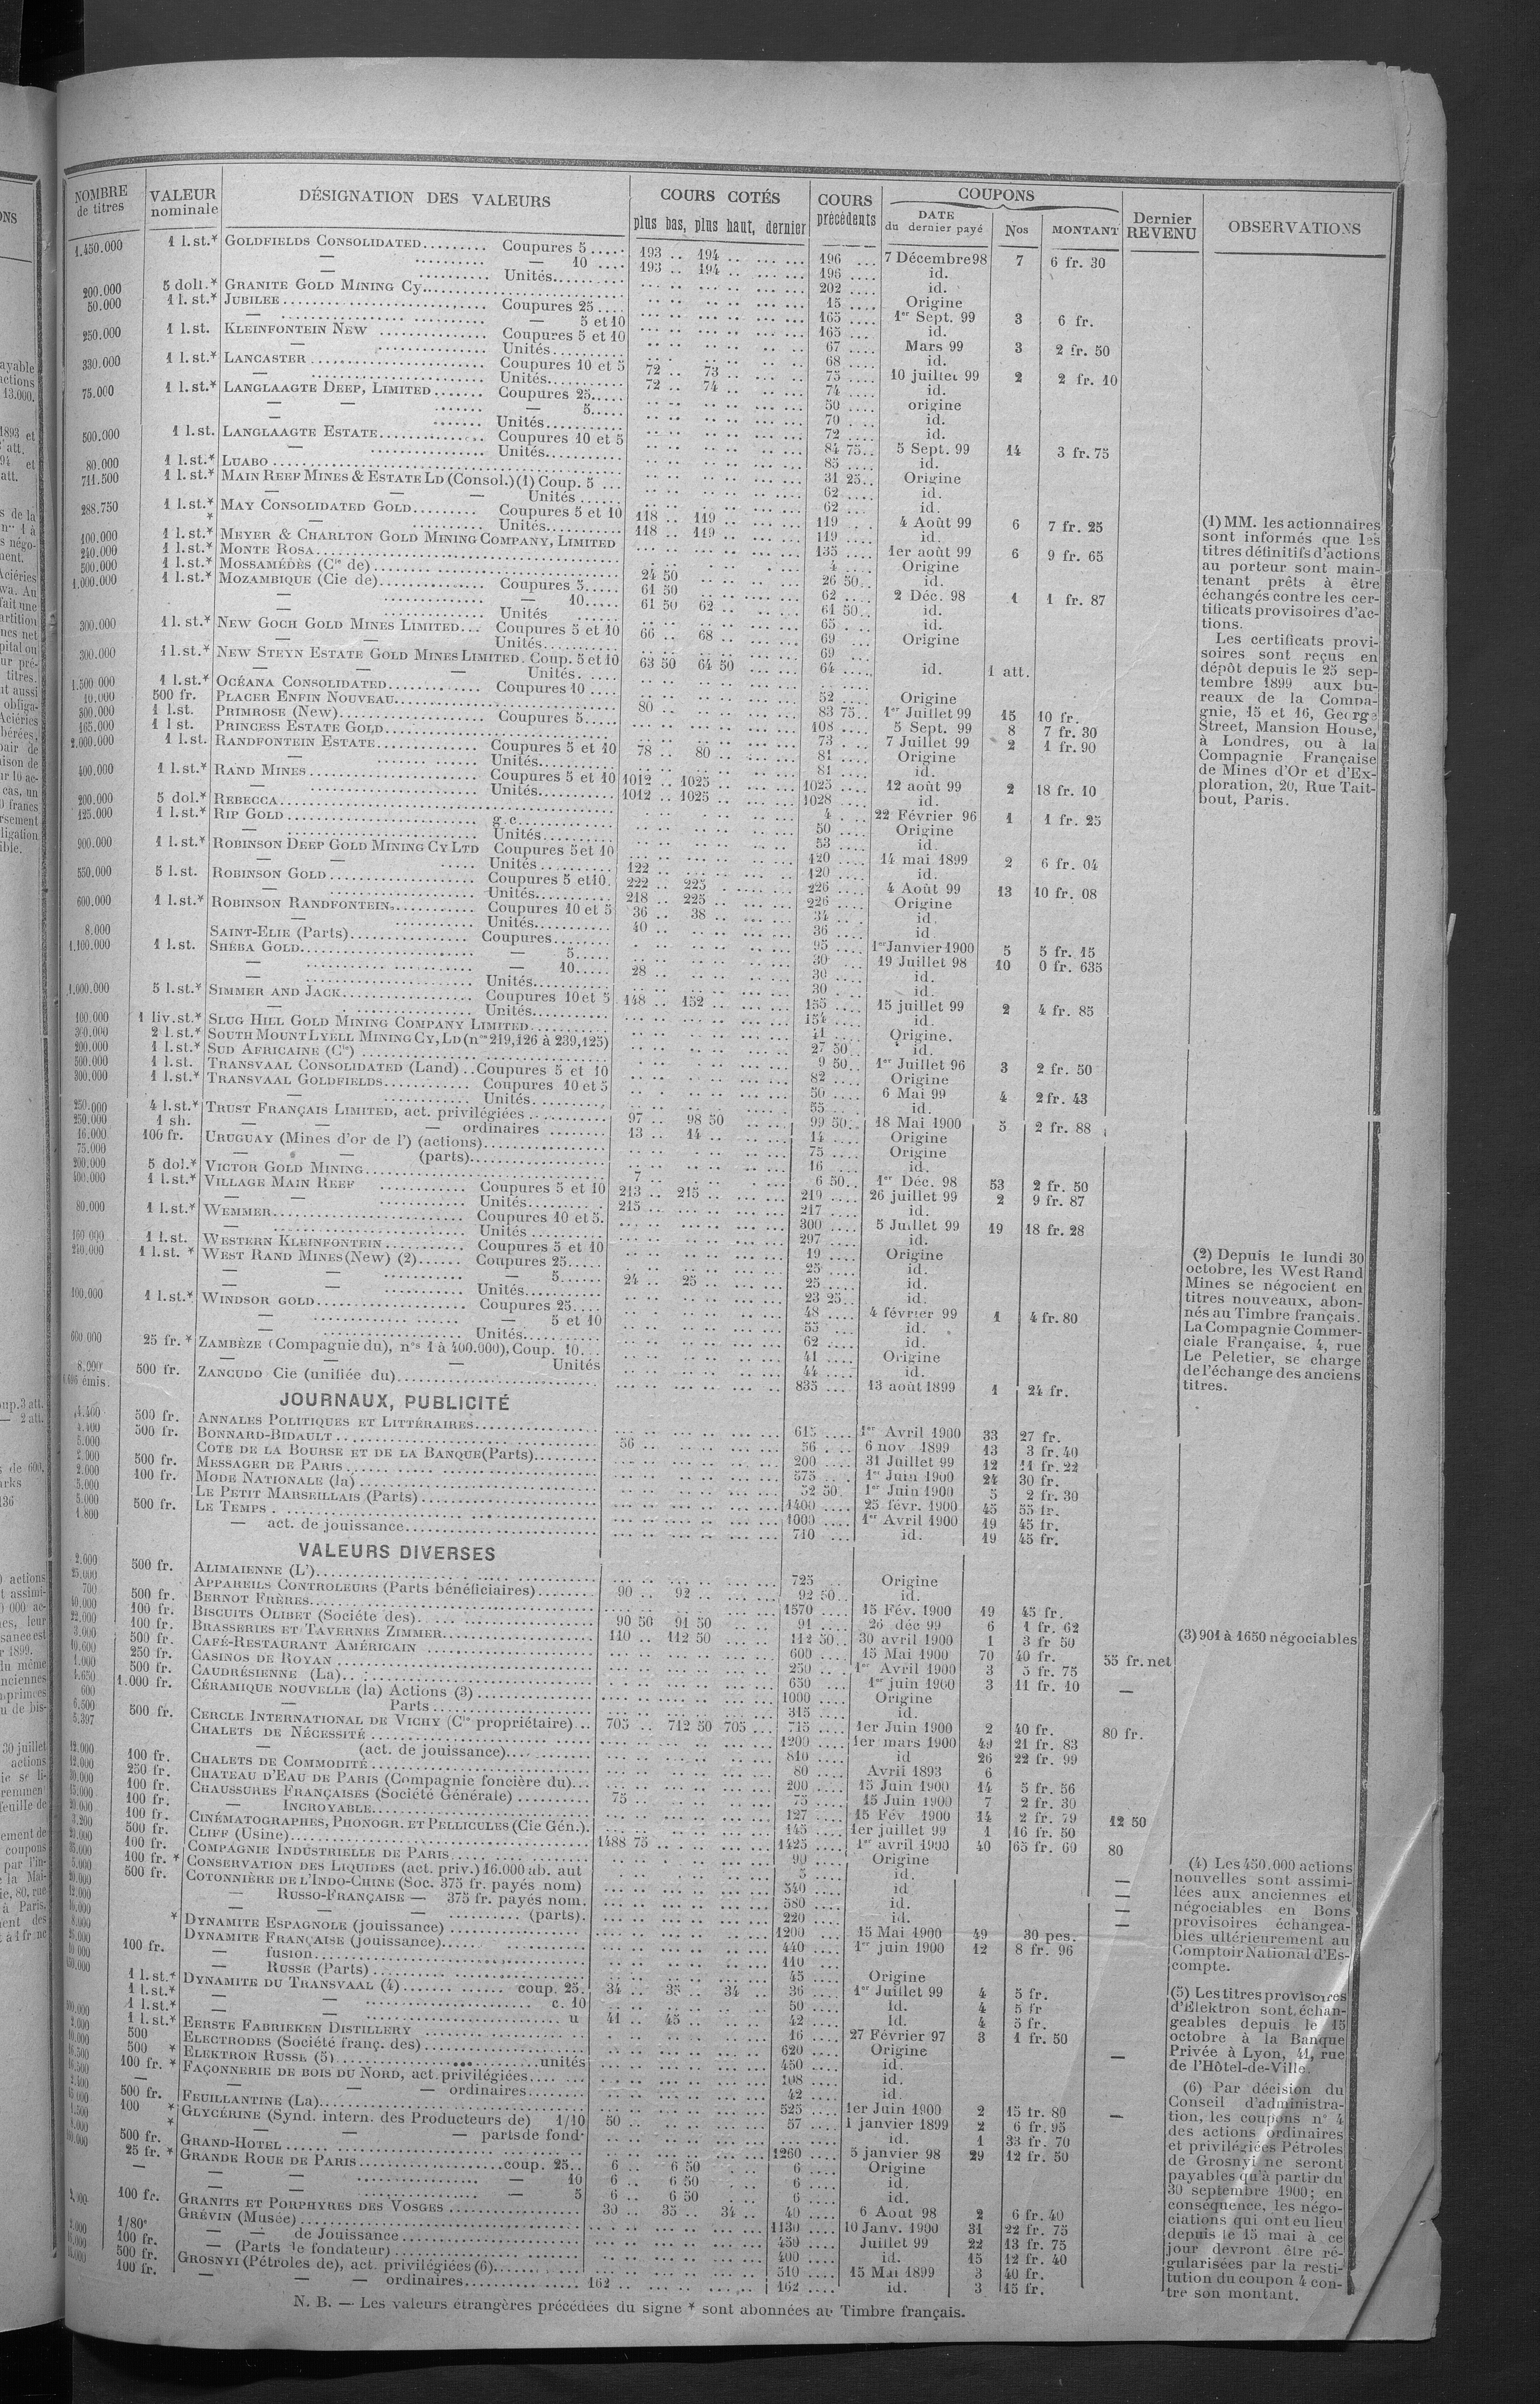 NOMBRE de titres | VALEUR nominale | DÉSIGNATION DES VALEURS | COURS COTÉS plus bas, plus haut, dernier | COURS précédents | COUPONS DATE du dernier payé | Nos | MONTANT | Dernier REVENU | OBSERVATIONS
1.450.000 1 l.st.* GOLDFIELDS CONSOLIDATED......... Coupures 5..... 193 .. 194 .. 196 .... 7 Décembre 98 7 6 fr. 30
— ......... — 10 .... 193 .. 194 .. 196 .... id.
— .......... Unités.......... 202 .... id.
200.000 5 doll.* GRANITE GOLD MINING Cy.. 15 .... Origine
50.000 1 l. st.* JUBILEE ............ Coupures 25 .... 165 .... 1er Sept. 99 3 6 fr.
— ......... — 5 et 10 165 .... id.
250.000 1 l.st. KLEINFONTEIN NEW ............... Coupures 5 et 10 67 .... Mars 99 3 2 fr. 50
— ............... Unités.......... 68 .... id.
330.000 1 l.st.* LANCASTER ............ Coupures 10 et 5 72 .. 73 .. 75 .... 10 juillet 99 2 2 fr. 10
— ............ Unités.......... 72 .. 74 .. 74 .... id.
75.000 1 l.st.* LANGLAAGTE DEEP, LIMITED....... Coupures 25..... 50 .... origine
— — ....... — 5..... 70 ... id.
....... Unités.......... 72 .... id.
500.000 1 l.st. LANGLAAGTE ESTATE............... Coupures 10 et 5 84 75.. 5 Sept. 99 14 3 fr. 75
— ............... Unités.......... 85 .... id.
80.000 1 l.st.* LUABO ............ 31 25.. Origine
711.500 1 l.st.* MAIN REEF MINES & ESTATE LD (Consol.) (1) Coup. 5 ... 62 .... id.
— — — Unités ...... 62 .... id.
288.750 1 l.st.* MAY CONSOLIDATED GOLD......... Coupures 5 et 10 118 .. 119 .. 119 .. 4 Août 99 6 7 fr. 25
* — .......... Unités.......... 118 .. 119 .. 119 .... id.
100.000 1 l.st.* MEYER & CHARLTON GOLD MINING COMPANY, LIMITED 135 .... 1er août 99 6 9 fr. 65
240.000 1 l.st.* MONTE ROSA............ 4 .... Origine
500.000 1 l.st.* MOSSAMÉDÈS (Cie de) ............ 24 50 26 50.. id.
1.000.000 1 l.st.* MOZAMBIQUE (Cie de)............... Coupures 5..... 61 50 62 .... 2 Déc. 98 1 1 fr. 87
— ............... — 10..... 61 50 62 .. 61 50.. id.
— ............... Unités ...... 65 .... id.
300.000 1 l. st.* NEW GOCH GOLD MINES LIMITED... Coupures 5 et 10 66 .. 68 .. 69 .. Origine
— — Unités.......... 69 ...
300.000 1 l.st.* NEW STEYN ESTATE GOLD MINES LIMITED. Coup. 5 et 10 63 50 64 50 64 .... id. 1 att.
— — — Unités.....
1.500 000 1 l.st.* OCÉANA CONSOLIDATED............ Coupures 10 .... 52 .... Origine
10.000 500 fr. PLACER ENFIN NOUVEAU............ 80 .. 83 75.. 1er Juillet 99 15 10 fr.
300.000 1 l.st. PRIMROSE (New)............ Coupures 5..... 108 .... 5 Sept. 99 8 7 fr. 30
165.000 1 l st. PRINCESS ESTATE GOLD............ 73 . ... 7 Juillet 99 2 1 fr. 90
2.000.000 1 l.st. RANDFONTEIN ESTATE............... Coupures 5 et 10 78 .. 80 .. 81 .... Origine
— ............... Unités.......... 81 .... id.
400.000 1 l.st.* RAND MINES ............ Coupures 5 et 10 1012 .. 1025 .. 1025 .... 12 août 99 2 18 fr. 10
— ............ Unités.......... 1012 .. 1025 .. 1028 ... id.
200.000 5 dol.* REBECCA............ 4 . ... 22 Février 96 1 1 fr. 25
125.000 1 l.st.* RIP GOLD ............ g.c............ 50 .... Origine
— ............ Unités.......... 53 .... id.
900.000 1 l.st.* ROBINSON DEEP GOLD MINING CY LTD Coupures 5 et 10 120 .... 14 mai 1899 2 6 fr. 04
— — ..... Unités .......... 122 .. 120 .... id.
550.000 5 l.st. ROBINSON GOLD............ Coupures 5 et 10. 222 .. 225 .. 226 .... 4 Août 99 13 10 fr. 08
— ............ Unités.......... 218 .. 225 .. 226 .... Origine
600.000 1 l.st.* ROBINSON RANDFONTEIN............ Coupures 10 et 5 36 .. 38 .. 34 .. id.
— ............ Unités.......... 40 .. 36 .... id
8.000 SAINT-ELIE (Parts)............ Coupures........ 95 .... 1er Janvier 1900 5 5 fr. 15
1.100.000 1 l.st. SHEBA GOLD............ — 5..... 30 ... 19 Juillet 98 10 0 fr. 635
— ............ — 10..... 28 .. 30 .... id.
— ............ Unités.......... 30 .... id.
1.000.000 5 l.st.* SIMMER AND JACK............ Coupures 10 et 5 148 .. 152 .. 155 .... 15 juillet 99 2 4 fr. 85
— ............ Unités.......... 154 .... id.
100.000 1 liv.st.* SLUG HILL GOLD MINING COMPANY LIMITED.......... 11 .... Origine.
2 l.st.* SOUTH MOUNT LYELL MINING CY, LD (nos 219,126 à 239,125) 27 50.. id.
200.000 1 l.st.* SUD AFRICAINE (Cie) ............ 9 50.. 1er Juillet 96 3 2 fr. 50
500.000 1 l.st. TRANSVAAL CONSOLIDATED (Land) ..Coupures 5 et 10 82 .... Origine
300.000 1 l.st.* TRANSVAAL GOLDFIELDS............ Coupures 10 et 5 50 .... 6 Mai 99 4 2 fr. 43
— ............ Unités.......... 55 .. id.
250.000 4 l.st.* TRUST FRANÇAIS LIMITED, act. privilégiées ............ 97 .. 98 50 99 50.. 18 Mai 1900 5 2 fr. 88
250.000 1 sh. — — — ordinaires ........ 13 .. 14 .. 14 .... Origine
16.000 100 fr. URUGUAY (Mines d'or de l') (actions)............ 75 .... Origine
75.000 — — (parts)............ 16 .... id.
200.000 5 dol.* VICTOR GOLD MINING............ 7 .. 6 50.. 1er Déc. 98 53 2 fr. 50
400.000 1 l.st.* VILLAGE MAIN REEF ............ Coupures 5 et 10 213 .. 215 .. 219 .... 26 juillet 99 2 9 fr. 87
— — ............ Unités.......... 215 .. 217 .... id.
80.000 1 l.st.* WEMMER............ Coupures 10 et 5. 300 .... 5 Juillet 99 19 18 fr. 28
— ............ Unités .......... 297 .... id.
160 000 1 l.st. WESTERN KLEINFONTEIN ............ Coupures 5 et 10 19 .... Origine
240.000 1 l.st. * WEST RAND MINES (New) (2)...... Coupures 25..... 25 .... id.
— — ............ — 5...... 24 .. 25 .. 25 .... id.
— — ............ Unités.......... 23 25.. id.
100.000 1 l.st.* WINDSOR GOLD............ Coupures 25..... 48 .... 4 février 99 1 4 fr. 80
— ............ — 5 et 10 55 .... id.
— ............ Unités.......... 62 .... id.
600 000 25 fr. * ZAMBÈZE (Compagnie du), nos 1 à 400.000), Coup. 10... 41 .... Origine
— — — Unités 44 .... id.
8.000 500 fr. ZANCUDO Cie (unifiée du)............ 835 .... 13 août 1899 1 24 fr.
émis.
JOURNAUX, PUBLICITÉ
4.400 500 fr. ANNALES POLITIQUES ET LITTÉRAIRES............ 615 .... 1er Avril 1900 33 27 fr.
4.400 500 fr. BONNARD-BIDAULT ............ 56 .. 56 .. 6 nov 1899 13 3 fr. 40
5.000 COTE DE LA BOURSE ET DE LA BANQUE (Parts)......... 200 .... 31 Juillet 99 12 11 fr. 22
2.900 500 fr. MESSAGER DE PARIS ............ 575 .... 1er Juin 1900 24 30 fr.
2.000 100 fr. MODE NATIONALE (la) ............ 52 50. 1er Juin 1900 5 2 fr. 30
5.000 LE PETIT MARSEILLAIS (Parts)............ 1400 .... 25 févr. 1900 45 55 fr.
5.000 500 fr. LE TEMPS ............ 1000 .... 1er Avril 1900 19 45 fr.
1.800 — act. de jouissance............ 710 ... id. 19 45 fr.
VALEURS DIVERSES
2.000 500 fr. ALIMAIENNE (L')............ 725 Origine
25.000 APPAREILS CONTROLEURS (Parts bénéficiaires)........ 90 .. 92 .. 92 50.. id.
700 500 fr. BERNOT FRÈRES............ 1570 .... 15 Fév. 1900 19 45 fr.
40.000 100 fr. BISCUITS OLIBET (Société des)............ 90 50 91 50 91 .... 26 déc 99 6 1 fr. 62
22.000 100 fr. BRASSERIES ET TAVERNES ZIMMER............ 110 .. 112 50 112 50.. 30 avril 1900 1 3 fr 50
3.000 500 fr. CAFÉ-RESTAURANT AMÉRICAIN ............ 600 .... 15 Mai 1900 70 40 fr. 55 fr. net
10.600 250 fr. CASINOS DE ROYAN ............ 250 ... 1er Avril 1900 3 5 fr. 75
1.000 500 fr. CAUDRÉSIENNE (La)............ 650 1er juin 1900 3 11 fr. 10 —
1.650 1.000 fr. CÉRAMIQUE NOUVELLE (la) Actions (3)............ 1000 .... Origine
600 — Parts............ 315 .... id.
6.500 500 fr. CERCLE INTERNATIONAL DE VICHY (Cie propriétaire)... 705 .. 712 50 705 ... 715 .... 1er Juin 1900 2 40 fr. 80 fr.
5.397 CHALETS DE NÉCESSITÉ ............ 1200 .... 1er mars 1900 49 21 fr. 83
— (act. de jouissance)............ 810 .... id 26 22 fr. 99
12.000 100 fr. CHALETS DE COMMODITÉ ............ 80 .... Avril 1893 6
250 fr. CHATEAU D'EAU DE PARIS (Compagnie foncière du)... 200 .... 15 Juin 1900 14 5 fr. 56
100 fr. CHAUSSURES FRANÇAISES (Société Générale) .......... 75 .. 75 .... 15 Juin 1900 7 2 fr. 30
100 fr. — INCROYABLE............ 127 .... 15 Fév 1900 14 2 fr. 79 12 50
100 fr. CINÉMATOGRAPHES, PHONOGR. ET PELLICULES (Cie Gén.). 145 .... 1er juillet 99 1 16 fr. 50
3.200 500 fr. CLIFF (Usine)............ 1488 75 1425 .... 1er avril 1900 40 65 fr. 60 80
100 fr. COMPAGNIE INDUSTRIELLE DE PARIS............ 90 .... Origine
100 fr. * CONSERVATION DES LIQUIDES (act. priv.) 16.000 ab. aut 5 .... id.
500 fr. COTONNIÈRE DE L'INDO-CHINE (Soc. 375 fr. payés nom) 540 .... id —
— RUSSO-FRANÇAISE — 375 fr. payés nom. 580 .... id. —
— — — ......... (parts). 220 .... id. —
* DYNAMITE ESPAGNOLE (jouissance) ............ 1200 ... 15 Mai 1900 49 30 pes. —
DYNAMITE FRANÇAISE (jouissance)............ 440 .... 1er juin 1900 12 8 fr. 96
100 fr. — fusion............ 110 ....
— RUSSE (Parts) ............ 45 .... Origine
1 l.st.* DYNAMITE DU TRANSVAAL (4)............ coup. 25. 34 .. 35 .. 34 .. 36 .... 1er Juillet 99 4 5 fr.
1 l.st.* — — ............ c. 10 50 .... id. 4 5 fr
1 l.st.* — — ............ u 41 .. 45 .. 42 .... id. 4 5 fr.
1 l.st.* EERSTE FABRIEKEN DISTILLERY ............ 16 .... 27 Février 97 3 1 fr. 50
500 ELECTRODES (Société franç. des)............ 620 .... Origine
500 * ELEKTRON RUSSE (5)............ unités 450 .... id. —
100 fr. * FAÇONNERIE DE BOIS DU NORD, act. privilégiées...... 108 .... id.
— — — — ordinaires........ 42 .... id.
500 fr. FEUILLANTINE (La)............ 525 .... 1er Juin 1900 2 15 fr. 80
100 * GLYCÉRINE (Synd. intern. des Producteurs de) 1/10 50 .. 57 .... 1 janvier 1899 2 6 fr. 95 —
* — — — parts de fond. id. 1 33 fr. 70
500 fr. GRAND-HOTEL ............ 1260 .... 5 janvier 98 29 12 fr. 50
25 fr. * GRANDE ROUE DE PARIS............ coup. 25.. 6 .. 6 50 6 .... Origine
— — — ............ — 10 6 .. 6 50 6 .... id.
— — ............ — 5 6 .. 6 50 6 .... id.
100 fr. GRANITS ET PORPHYRES DES VOSGES ............ 30 .. 35 .. 34 .. 40 .... 6 Août 98 2 6 fr. 40
GRÉVIN (Musée) ............ 1130 .... 10 Janv. 1900 31 22 fr. 75
1/80e — — de Jouissance............ 450 .... Juillet 99 22 13 fr. 75
100 fr. — (Parts de fondateur)............ 400 .... id. 15 12 fr. 40
500 fr. GROSNYI (Pétroles de), act. privilégiées (6)............ 510 .... 15 Mai 1899 3 40 fr.
100 fr. — — — ordinaires............ 162 .. 162 .... id. 3 15 fr.
(1) MM. les actionnaires
sont informés que les
titres définitifs d'actions
au porteur sont main-
tenant prêts à être
échangés contre les cer-
tificats provisoires d'ac-
tions.
Les certificats provi-
soires sont reçus en
dépôt depuis le 25 sep-
tembre 1899 aux bu-
reaux de la Compa-
gnie, 15 et 16, George
Street, Mansion House,
à Londres, ou à la
Compagnie Française
de Mines d'Or et d'Ex-
ploration, 20, Rue Tait-
bout, Paris.
(2) Depuis le lundi 30
octobre, les West Rand
Mines se négocient en
titres nouveaux, abon-
nés au Timbre français.
La Compagnie Commer-
ciale Française, 4, rue
Le Peletier, se charge
de l'échange des anciens
titres.
(3) 901 à 1650 négociables
(4) Les 450.000 actions
nouvelles sont assimi-
lées aux anciennes et
négociables en Bons
provisoires échangea-
bles ultérieurement au
Comptoir National d'Es-
compte.
(5) Les titres provisoires
d'Elektron sont échan-
geables depuis le 15
octobre à la Banque
Privée à Lyon, 41, rue
de l'Hôtel-de-Ville.
(6) Par décision du
Conseil d'administra-
tion, les coupons n° 4
des actions ordinaires
et privilégiées Pétroles
de Grosnyi ne seront
payables qu'à partir du
30 septembre 1900; en
conséquence, les négo-
ciations qui ont eu lieu
depuis le 15 mai à ce
jour devront être ré-
gularisées par la resti-
tution du coupon 4 con-
tre son montant.
N. B. — Les valeurs étrangères précédées du signe * sont abonnées au Timbre français.